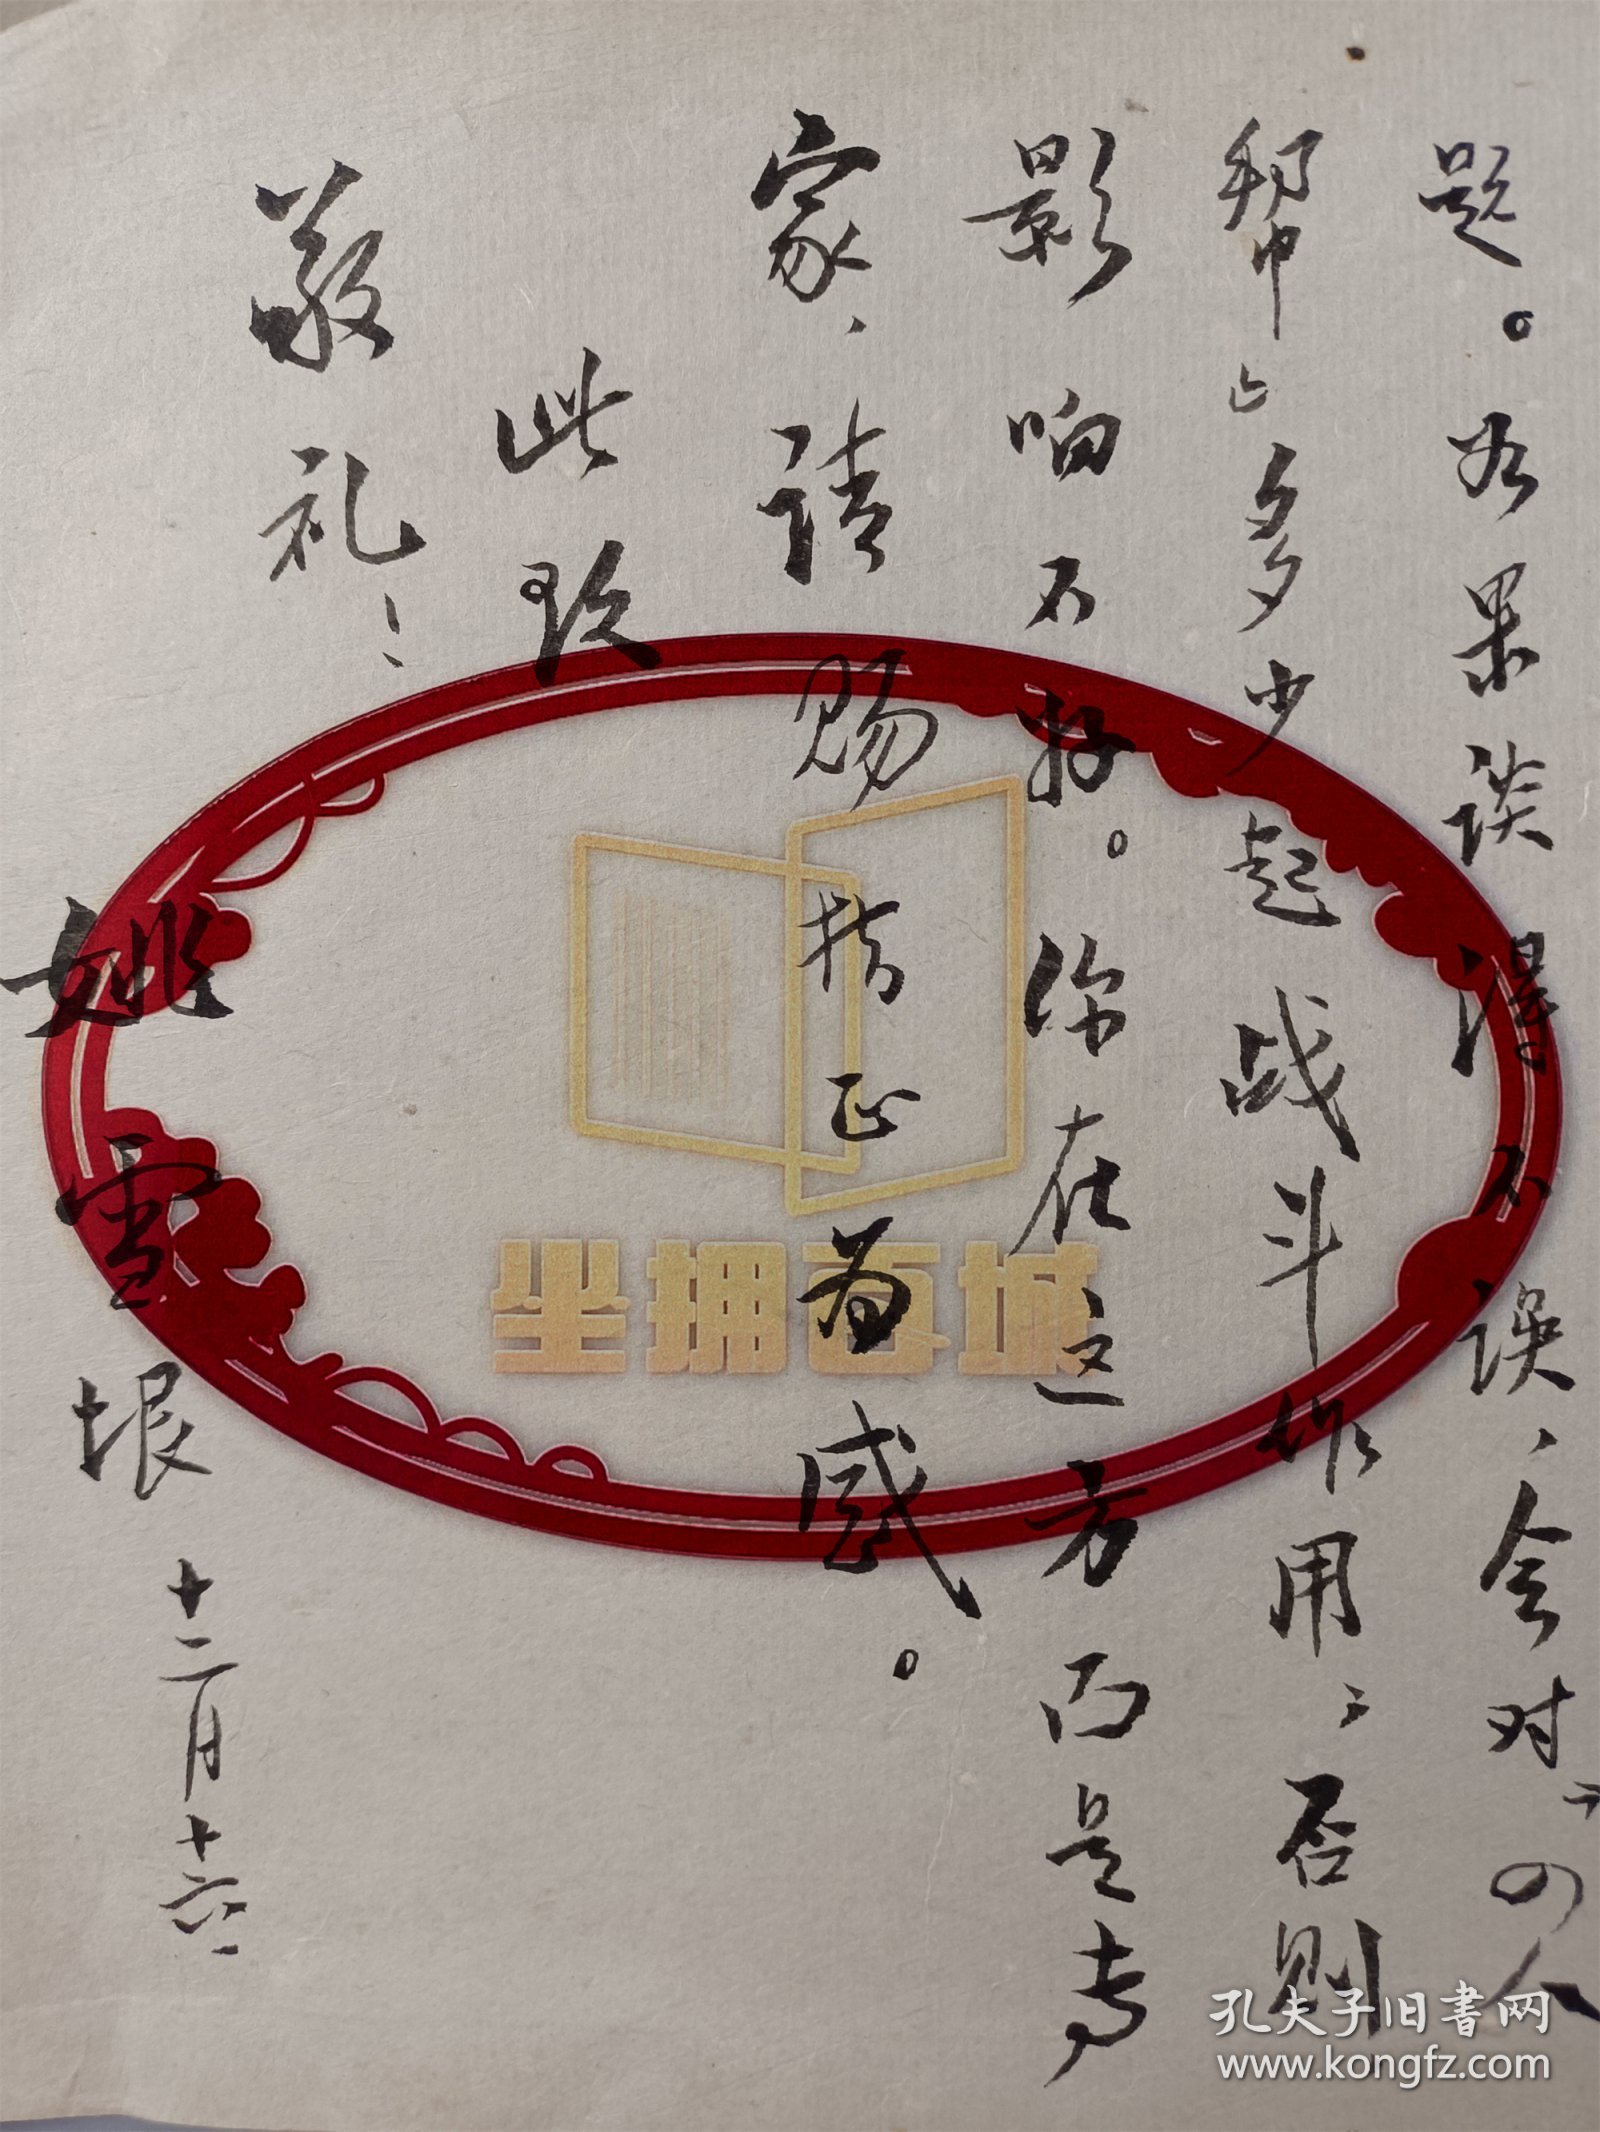 题。如果谈得不误，会对“四人
帮”多少起战斗作用；否则
影响不好。你在这方面是专
家，请赐指正为感。
此致
敬礼！
姚雪垠 十二月十六
坐拥百城
孔夫子旧书网
www.kongfz.com